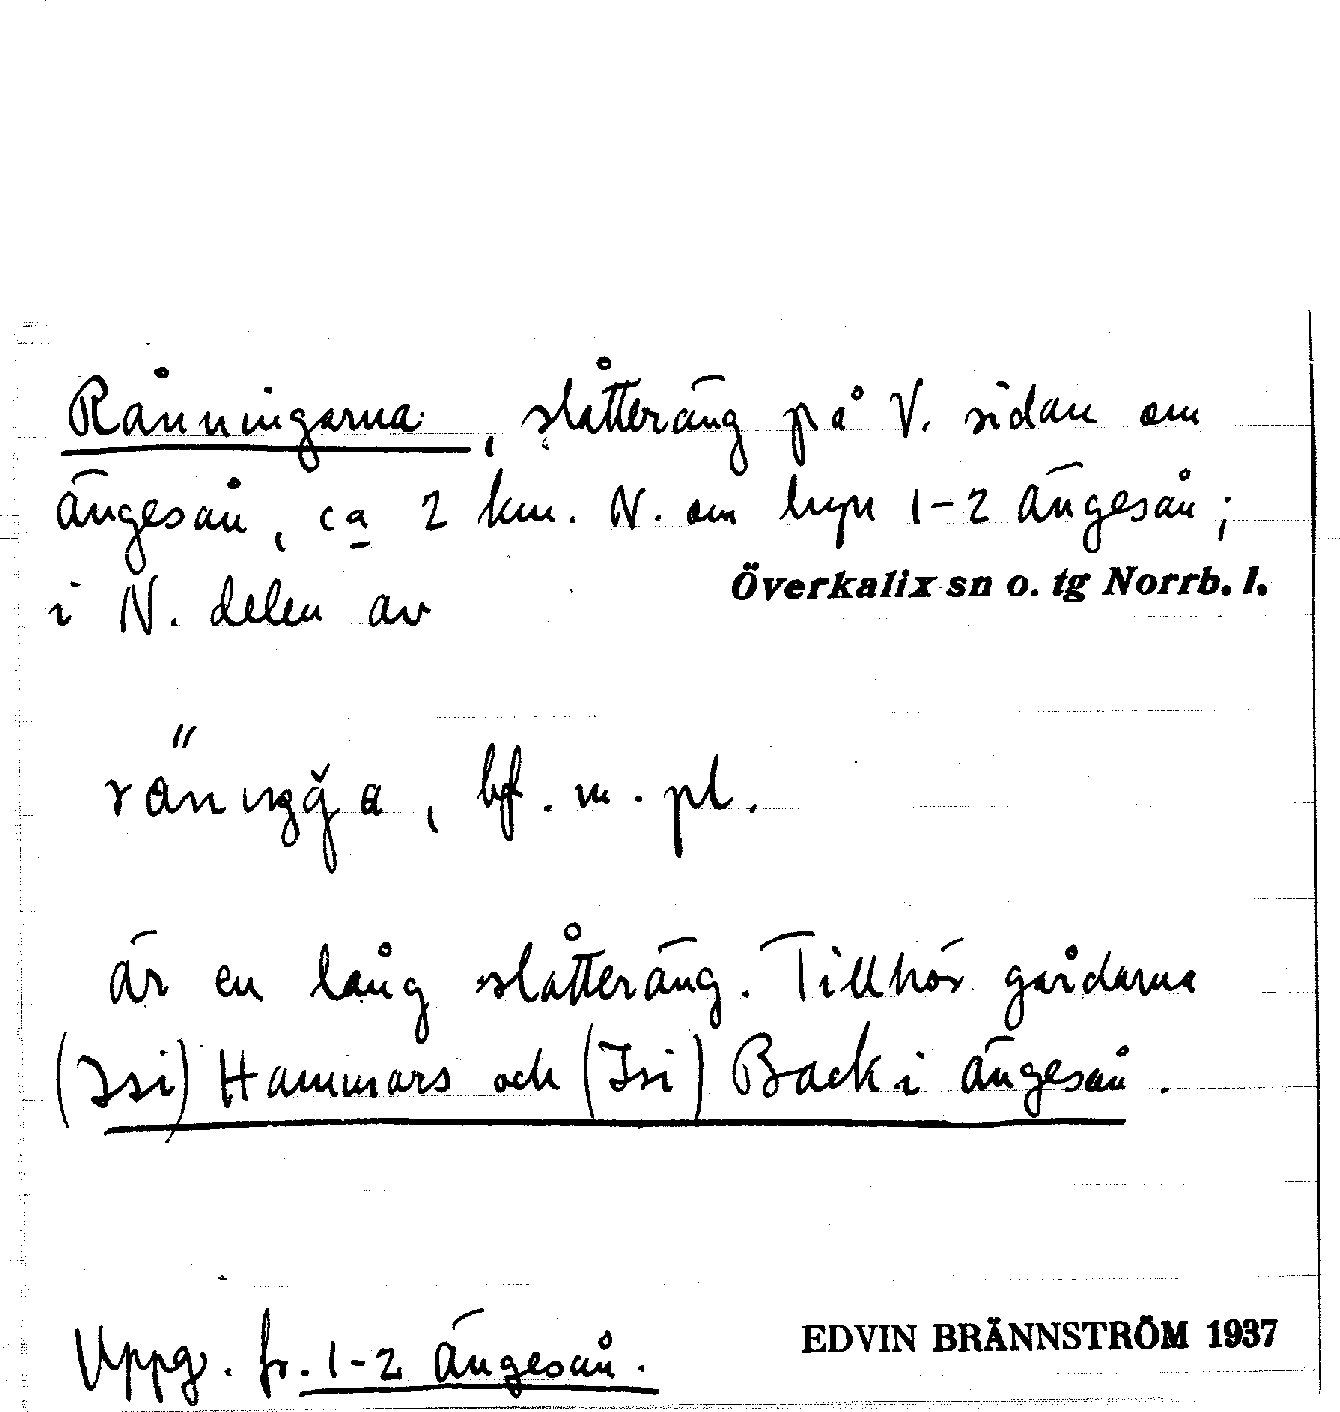 Råningarna, slåtteräng på V. sidan om
Ängesån, ca 2 km. N. om byn 1-2 Ängesån;
Överkalix sn o. tg Norrb. l.
i N. delen av
bf. m. pl.
är en lång slåtteräng. Tillhör gårdarna
(Isi) Hammars och (Isi) Back i Ängesån.
Uppg. fr. 1-2 Ängesån.
EDVIN BRÄNNSTRÖM 1937